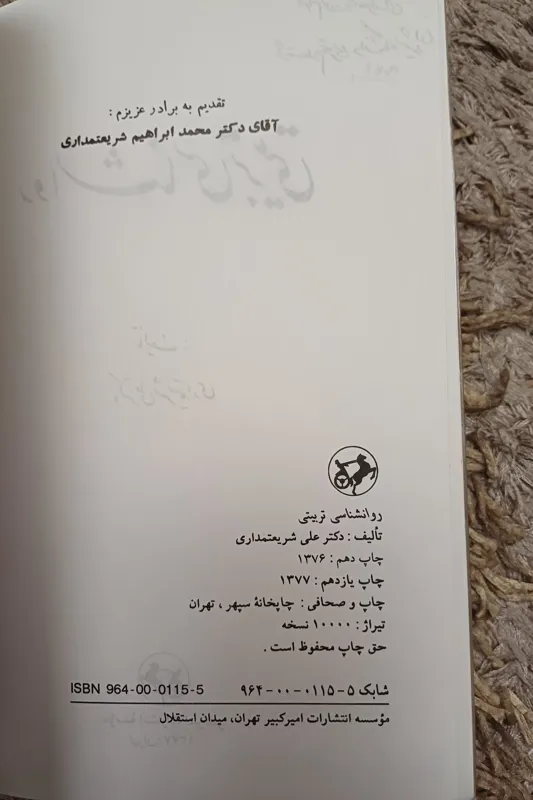 تقدیم به برادر عزیزم :
آقای دکتر محمد ابراهیم شریعتمداری
روانشناسی تربیتی
تألیف : دکتر علی شریعتمداری
چاپ دهم : ۱۳۷۶
چاپ یازدهم : ۱۳۷۷
چاپ و صحافی : چاپخانهٔ سپهر ، تهران
تیراژ : ۱۰۰۰۰ نسخه
حق چاپ محفوظ است .
شابک ۵-۰۱۱۵-۰۰-۹۶۴ ISBN 964-00-0115-5
مؤسسه انتشارات امیرکبیر تهران، میدان استقلال